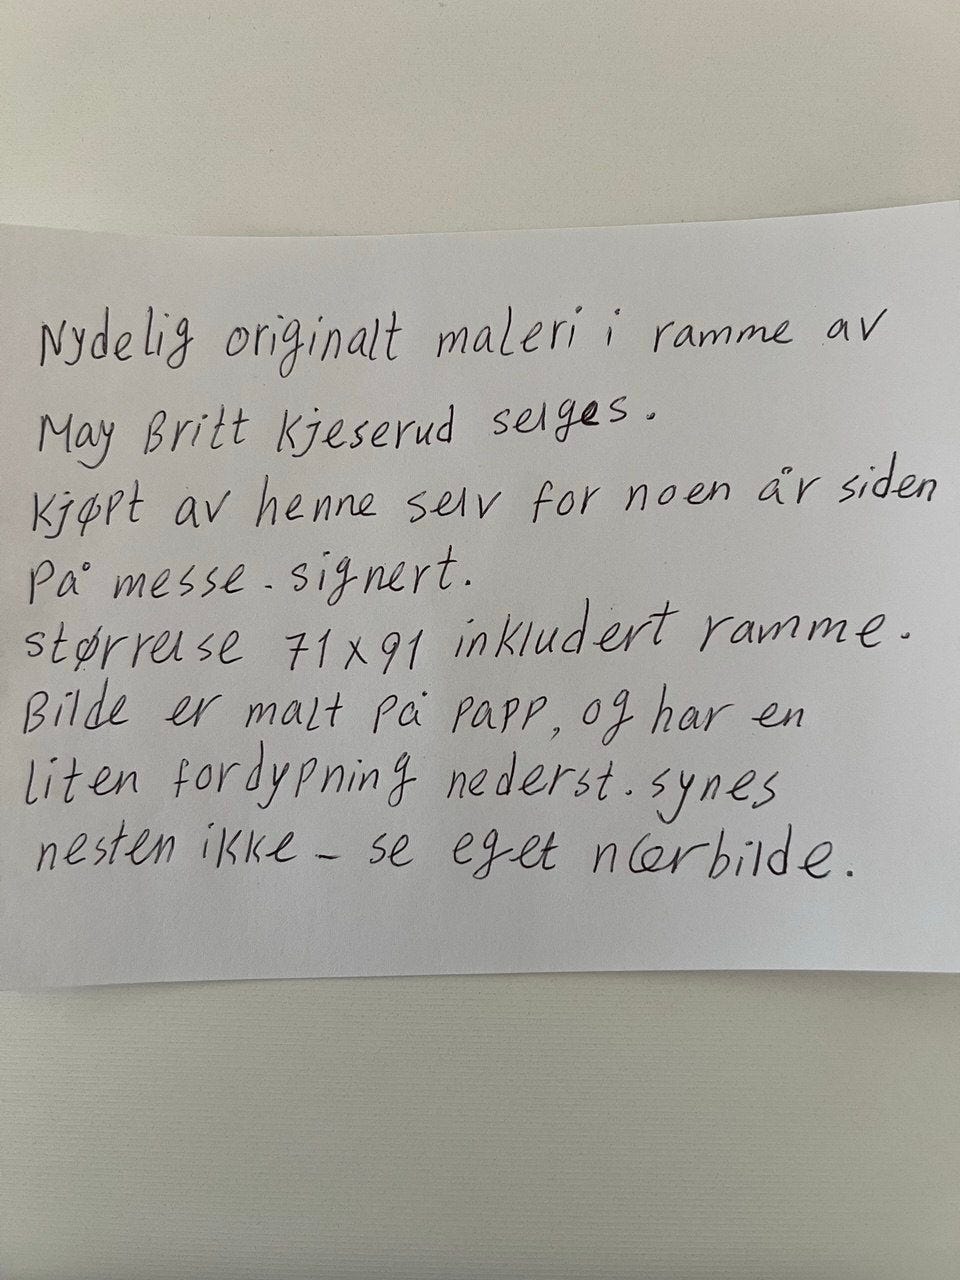 Nydelig originalt maleri i ramme av
May Britt Kjeserud selges.
Kjøpt av henne selv for noen år siden
på messe. signert.
størrelse 71x91 inkludert ramme.
Bilde er malt på papp, og har en
liten fordypning nederst. synes
nesten ikke - se eget nærbilde.